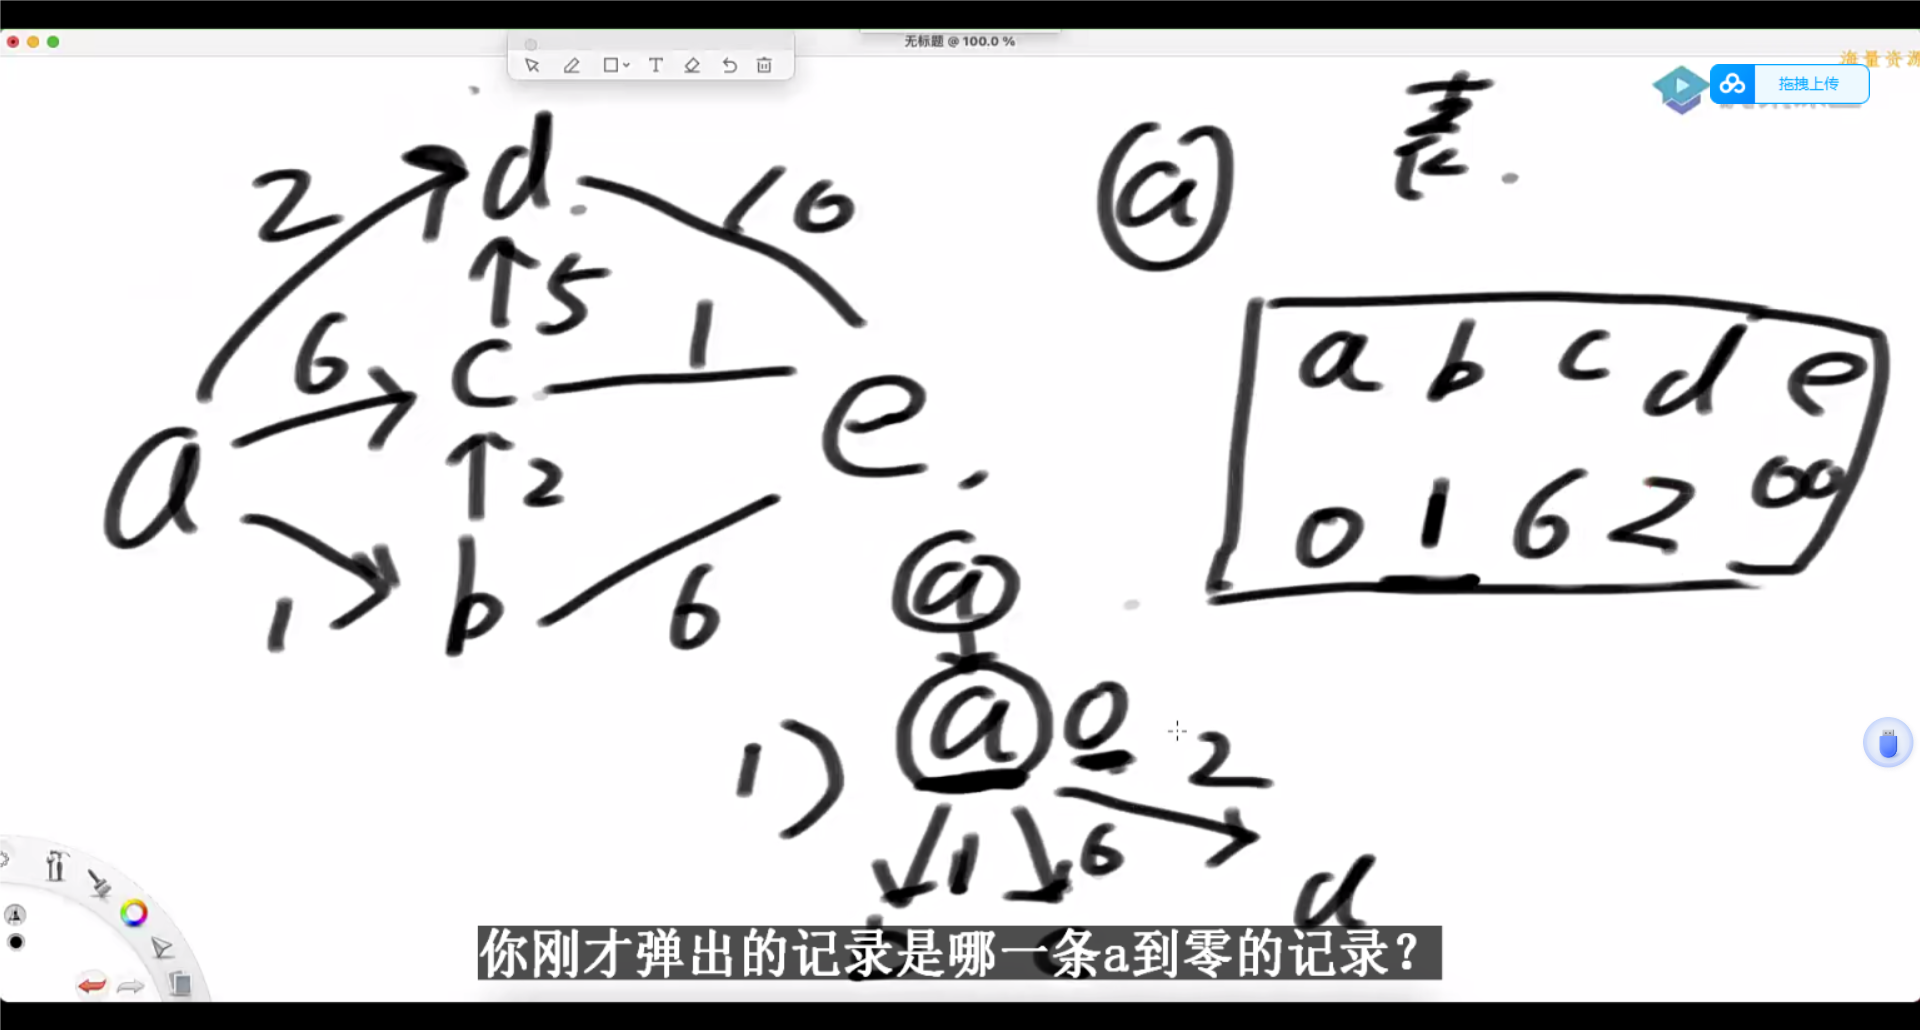 无标题 @ 100.0 %
海量资源
拖拽上传
表
a
2
d
10
5
6
c
1
e
a
2
1
b
6
a b c d e
0 1 6 2 ∞
a
1) a 0
2
1
6
d
你刚才弹出的记录是哪一条a到零的记录？